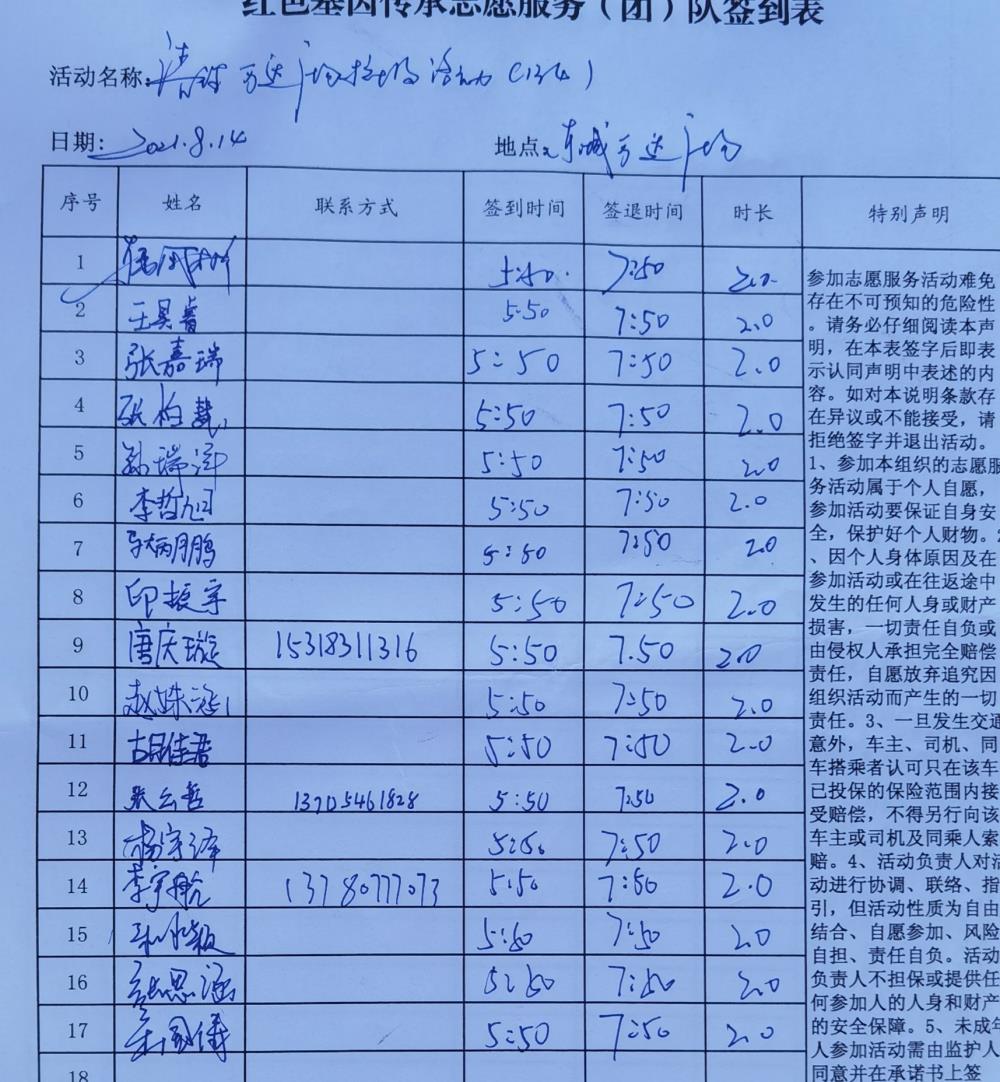 红色基因传承志愿服务（团）队签到表
活动名称: 清 万达广场垃圾活动
日期: 2021.8.14 地点: 东城万达广场
序号 姓名 联系方式 签到时间 签退时间 时长 特别声明
1 5:50. 7:50 2.0
2 王昊睿 5:50 7:50 2.0
3 张嘉瑞 5:50 7:50 2.0
4 张柏慧 5:50 7:50 2.0
5 孙瑞泽 5:50 7:50 2.0
6 李哲旭 5:50 7:50 2.0
7 马炳鹏 5:50 7:50 2.0
8 印振宇 5:50 7:50 2.0
9 唐庆璇 15318311316 5:50 7.50 2.0
10 赵姝涵 5:50 7:50 2.0
11 5:50 7:50 2.0
12 张云哲 13705461828 5:50 7:50 2.0
13 杨宇泽 5:50 7:50 2.0
14 李宇航 13780777073 5:50 7:50 2.0
15 5:50 7:50 2.0
16 思涵 5:50 7:50 2.0
17 5:50 7:50 2.0
18
参加志愿服务活动难免
存在不可预知的危险性
。请务必仔细阅读本声
明，在本表签字后即表
示认同声明中表述的内
容。如对本说明条款存
在异议或不能接受，请
拒绝签字并退出活动。
1、参加本组织的志愿服
务活动属于个人自愿，
参加活动要保证自身安
全，保护好个人财物。2
、因个人身体原因及在
参加活动或在往返途中
发生的任何人身或财产
损害，一切责任自负或
由侵权人承担完全赔偿
责任，自愿放弃追究因
组织活动而产生的一切
责任。3、一旦发生交通
意外，车主、司机、同
车搭乘者认可只在该车
已投保的保险范围内接
受赔偿，不得另行向该
车主或司机及同乘人索
赔。4、活动负责人对活
动进行协调、联络、指
引，但活动性质为自由
结合、自愿参加、风险
自担、责任自负。活动
负责人不担保或提供任
何参加人的人身和财产
的安全保障。5、未成年
人参加活动需由监护人
同意并在承诺书上签